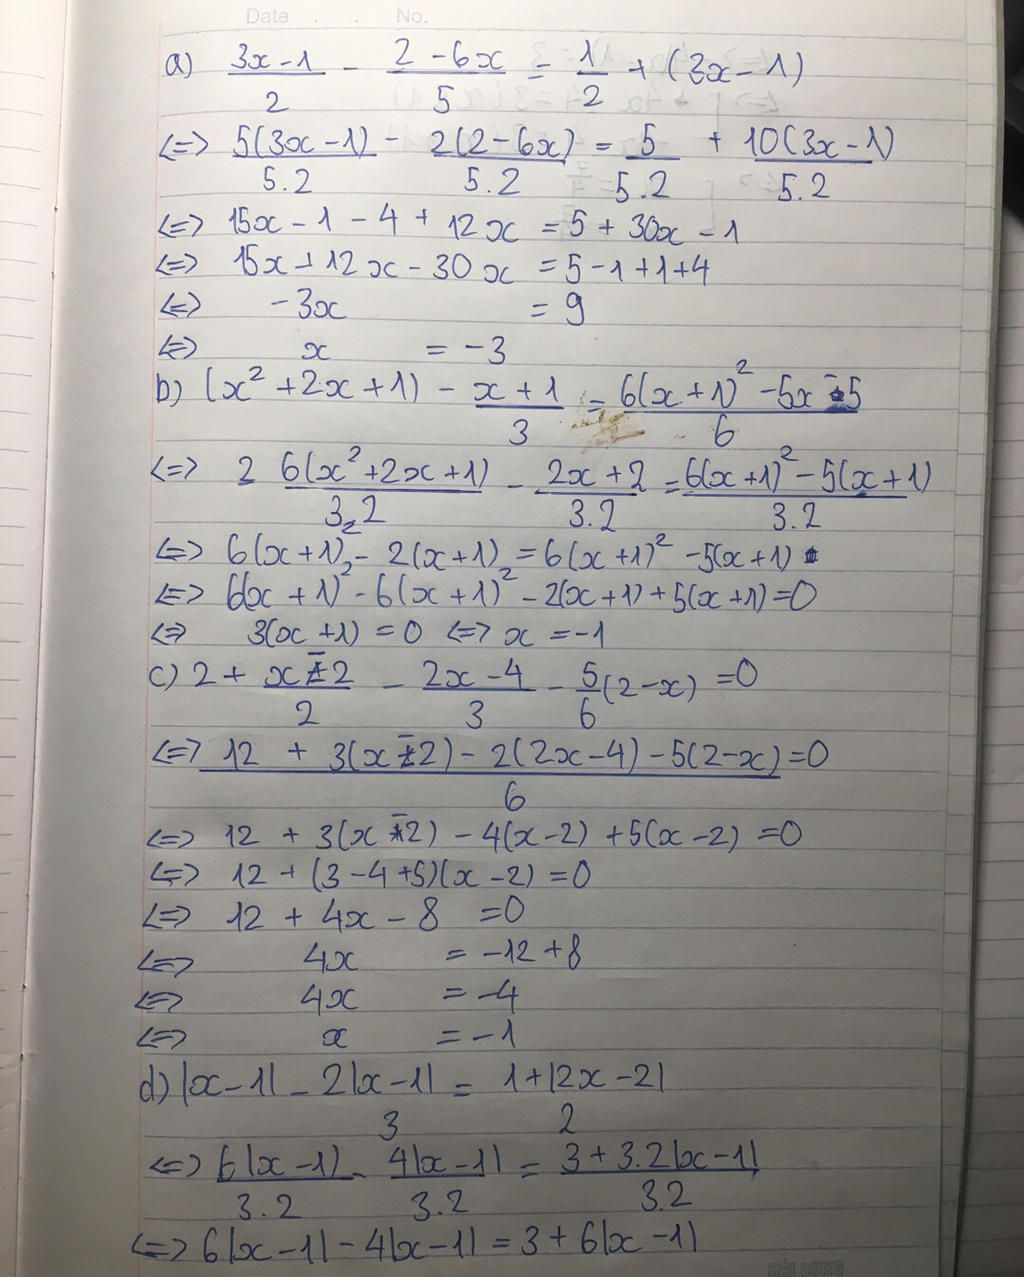 Date . . No.
a) (3x - 1)/2 - (2 - 6x)/5 = 1/2 + (3x - 1)
<=> 5(3x - 1)/5.2 - 2(2 - 6x)/5.2 = 5/5.2 + 10(3x - 1)/5.2
<=> 15x - 1 - 4 + 12x = 5 + 30x - 1
<=> 15x + 12x - 30x = 5 - 1 + 1 + 4
<=> -3x = 9
<=> x = -3
b) (x² + 2x + 1) - (x + 1)/3 = (6(x + 1)² - 5x - 5)/6
<=> 2 6(x² + 2x + 1)/3.2 - (2x + 2)/3.2 = (6(x + 1)² - 5(x + 1))/3.2
<=> 6(x + 1)² - 2(x + 1) = 6(x + 1)² - 5(x + 1)
<=> 6(x + 1)² - 6(x + 1)² - 2(x + 1) + 5(x + 1) = 0
<=> 3(x + 1) = 0 <=> x = -1
c) 2 + (x - 2)/2 - (2x - 4)/3 - 5/6 (2 - x) = 0
<=> (12 + 3(x - 2) - 2(2x - 4) - 5(2 - x))/6 = 0
<=> 12 + 3(x - 2) - 4(x - 2) + 5(x - 2) = 0
<=> 12 + (3 - 4 + 5)(x - 2) = 0
<=> 12 + 4x - 8 = 0
<=> 4x = -12 + 8
<=> 4x = -4
<=> x = -1
d) |x - 1| - 2|x - 1|/3 = 1 + |2x - 2|/2
<=> 6|x - 1|/3.2 - 4|x - 1|/3.2 = (3 + 3.2|x - 1|)/3.2
<=> 6|x - 1| - 4|x - 1| = 3 + 6|x - 1|
HẢI LONG